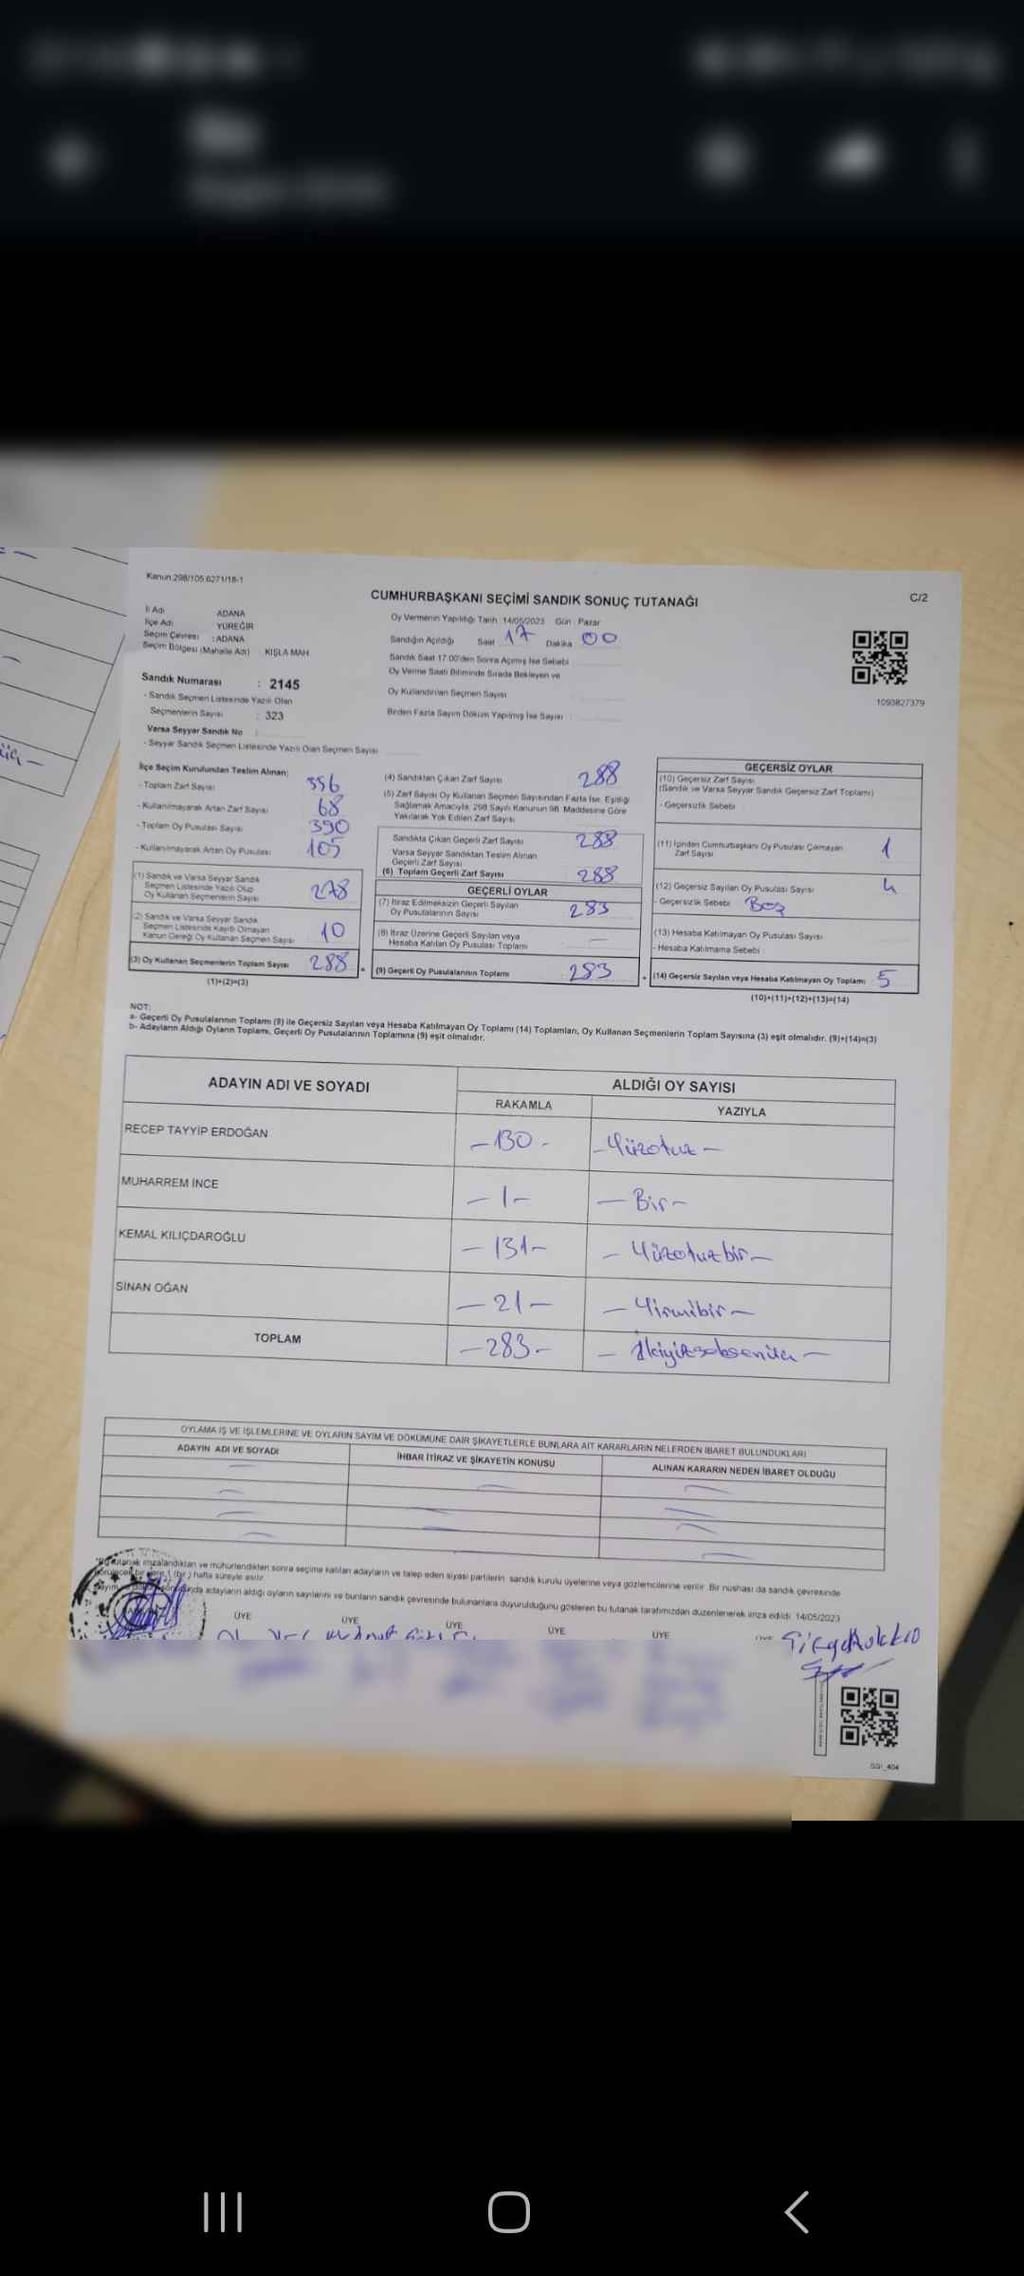 Kanun:298/105.6271/18-1
CUMHURBAŞKANI SEÇİMİ SANDIK SONUÇ TUTANAĞI
C/2
İl Adı ADANA
İlçe Adı : YÜREĞİR
Seçim Çevresi : ADANA
Seçim Bölgesi (Mahalle Adı) : KIŞLA MAH
Sandık Numarası : 2145
- Sandık Seçmen Listesinde Yazılı Olan
Seçmenlerin Sayısı : 323
Varsa Seyyar Sandık No :
- Seyyar Sandık Seçmen Listesinde Yazılı Olan Seçmen Sayısı
Oy Vermenin Yapıldığı Tarih: 14/05/2023 Gün : Pazar
Sandığın Açıldığı Saat 17 Dakika 00
Sandık Saat 17.00'den Sonra Açılmış İse Sebebi
Oy Verme Saati Bitiminde Sırada Bekleyen ve
Oy Kullandırılan Seçmen Sayısı
Birden Fazla Sayım Döküm Yapılmış İse Sayısı :
1093827379
İlçe Seçim Kurulundan Teslim Alınan;
- Toplam Zarf Sayısı 356
- Kullanılmayarak Artan Zarf Sayısı 68
- Toplam Oy Pusulası Sayısı 390
- Kullanılmayarak Artan Oy Pusulası 105
(1) Sandık ve Varsa Seyyar Sandık
Seçmen Listesinde Yazılı Olup
Oy Kullanan Seçmenlerin Sayısı 278
(2) Sandık ve Varsa Seyyar Sandık
Seçmen Listesinde Kayıtlı Olmayan
Kanun Gereği Oy Kullanan Seçmen Sayısı 10
(3) Oy Kullanan Seçmenlerin Toplam Sayısı 288
(1)+(2)=(3)
(4) Sandıktan Çıkan Zarf Sayısı 288
(5) Zarf Sayısı Oy Kullanan Seçmen Sayısından Fazla İse, Eşitliği
Sağlamak Amacıyla, 298 Sayılı Kanunun 98. Maddesine Göre
Yakılarak Yok Edilen Zarf Sayısı
Sandıkta Çıkan Geçerli Zarf Sayısı 288
Varsa Seyyar Sandıktan Teslim Alınan
Geçerli Zarf Sayısı
(6) Toplam Geçerli Zarf Sayısı 288
GEÇERLİ OYLAR
(7) İtiraz Edilmeksizin Geçerli Sayılan
Oy Pusulalarının Sayısı 283
(8) İtiraz Üzerine Geçerli Sayılan veya
Hesaba Katılan Oy Pusulası Toplamı —
(9) Geçerli Oy Pusulalarının Toplamı 283
GEÇERSİZ OYLAR
(10) Geçersiz Zarf Sayısı
(Sandık ve Varsa Seyyar Sandık Geçersiz Zarf Toplamı)
- Geçersizlik Sebebi
(11) İçinden Cumhurbaşkanı Oy Pusulası Çıkmayan
Zarf Sayısı 1
(12) Geçersiz Sayılan Oy Pusulası Sayısı 4
- Geçersizlik Sebebi : Boş
(13) Hesaba Katılmayan Oy Pusulası Sayısı
- Hesaba Katılmama Sebebi :
(14) Geçersiz Sayılan veya Hesaba Katılmayan Oy Toplamı 5
(10)+(11)+(12)+(13)=(14)
NOT:
a- Geçerli Oy Pusulalarının Toplamı (9) ile Geçersiz Sayılan veya Hesaba Katılmayan Oy Toplamı (14) Toplamları, Oy Kullanan Seçmenlerin Toplam Sayısına (3) eşit olmalıdır. (9)+(14)=(3)
b- Adayların Aldığı Oyların Toplamı, Geçerli Oy Pusulalarının Toplamına (9) eşit olmalıdır.
ADAYIN ADI VE SOYADI
ALDIĞI OY SAYISI
RAKAMLA YAZIYLA
RECEP TAYYİP ERDOĞAN —130— —Yüzotuz—
MUHARREM İNCE —1— —Bir—
KEMAL KILIÇDAROĞLU —131— —Yüzotuzbir—
SİNAN OĞAN —21— —Yirmibir—
TOPLAM —283— —İkiyüzseksenüç—
OYLAMA İŞ VE İŞLEMLERİNE VE OYLARIN SAYIM VE DÖKÜMÜNE DAİR ŞİKAYETLERLE BUNLARA AİT KARARLARIN NELERDEN İBARET BULUNDUKLARI
ADAYIN ADI VE SOYADI İHBAR İTİRAZ VE ŞİKAYETİN KONUSU ALINAN KARARIN NEDEN İBARET OLDUĞU
tutanak imzalandıktan ve mühürlendikten sonra seçime katılan adayların ve talep eden siyasi partilerin sandık kurulu üyelerine veya gözlemcilerine verilir. Bir nüshası da sandık çevresinde
(bir) hafta süreyle asılır.
adayların aldığı oyların sayılarını ve bunların sandık çevresinde bulunanlara duyurulduğunu gösteren bu tutanak tarafımızdan düzenlenerek imza edildi. 14/05/2023
ÜYE ÜYE ÜYE ÜYE ÜYE